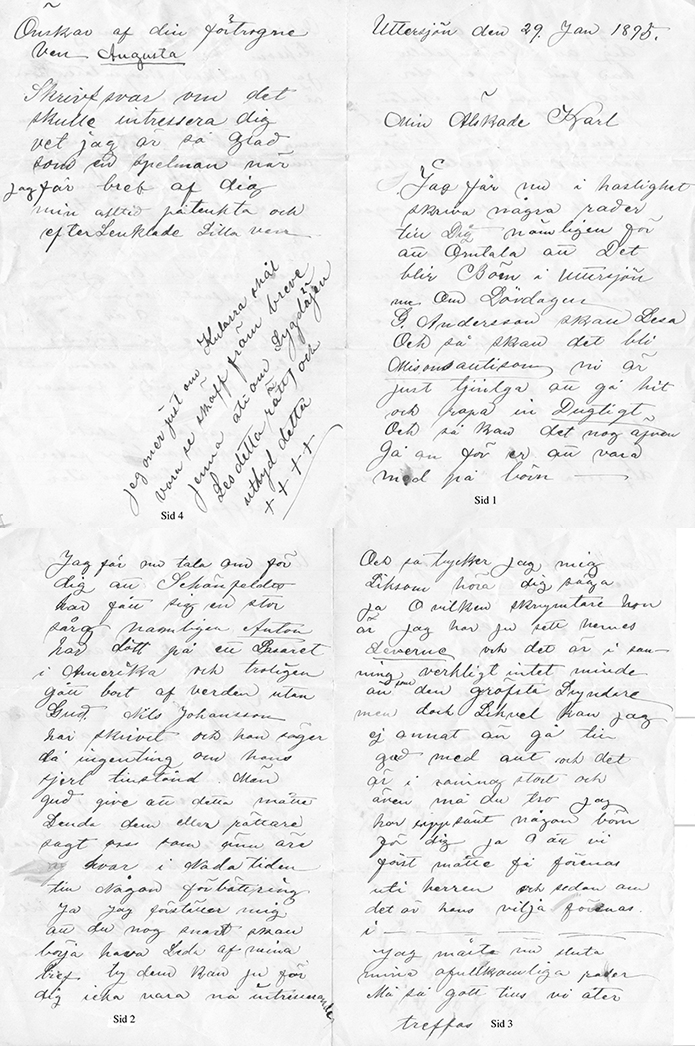 Uttersjön den 29. Jan 1895.
Min Älskade Karl
Jag får nu i hastighet
skriva några rader
till Dig nämligen för
att Omtala att Det
blir Bön i Uttersjön
nu Om Lövdagen
G. Andersson skall Lesa
Och så skall det bli
ni är
just att gå hit
och ropa in Dugtigt
Och så kan det nog äfven
Gå an för er att vara
med på bön
Sid 1
Jag får nu tala om för
dig att Schönfeldts
har fått sig en stor
sårg namligen Anton
har dött på ett Lasaret
i Amerika och troligen
gått bort af verden utan
Gud. Nils Johansson
har skrivit och han säger
då ingenting om hans
sjerl tillstånd. Men
gud give att detta måtte
Lenda dem eller rättare
sagt oss som ännu äre
qvar i Nadatiden
till Någon förbättring
Ja Jag förställer mig
att du nog snart skall
börja hava Leda af mina
bref ty dem kan ju för
dig icka vara nå intressande
Sid 2
Och så tycker jag mig
Liksom höra dig säga
ja O vilken skrymtare hon
är jag har ju sett hennes
Leverne och det är i san-
ning verkligt intet minde
än som den gröfsta Syndere
men dock Likvel kan jag
ej annat än gå till
gud med allt och det
är i sanning stort och
även må du tro jag
har uppsänt någon bön
för dig ja O att vi
först måtte få förenas
uti herren och sedan om
det är hans vilja förenas
i
Jag måste nu sluta
mina ofullkomliga rader
Må så gott tills vi åter
träffas
Sid 3
Önskar af din förtrogne
ven Augusta
Skrivf svar om det
skulle intressera dig
vet jag är så glad
som en spelman när
jag får bref af dig
min alltid påtenkta och
efterLenktade Lilla ven
jag
vara se skäff från breve
Les detta rätt och
uthyd detta
+ + + +
Sid 4